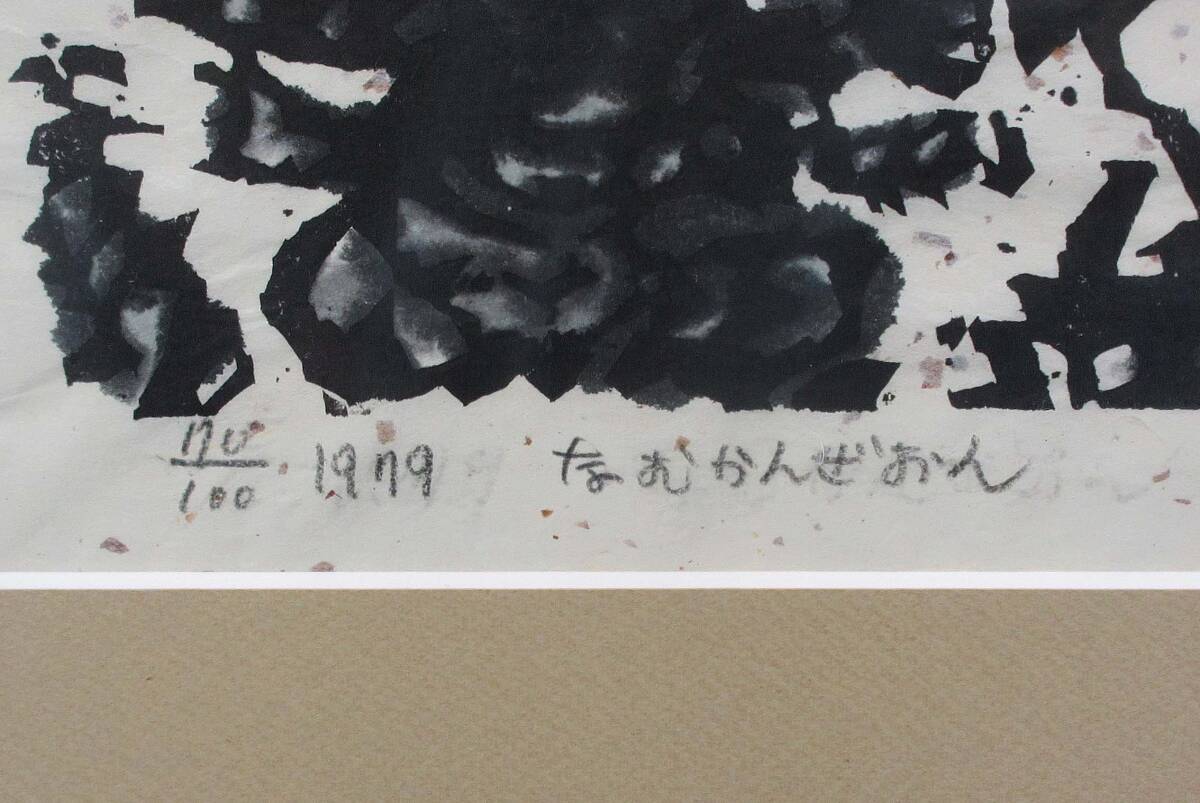 70/100 1979 なむかんぜおん